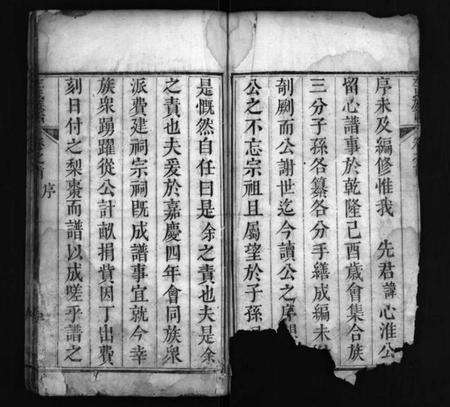 序未及編修惟我 先君諱心淮公
留心譜事於乾隆己酉歲會集合族
三分子孫各纂各分手繕成編未
剞劂而公謝世迄今讀公之序
公之不忘宗祖且屬望於子孫
是慨然自任曰是余之責也夫是余
之責也夫爰於嘉慶四年會同族衆
派費建祠宗祠既成譜事宜就今幸
族衆踴躍從公計畝捐貲因丁出費
刻日付之梨棗而譜以成嗟乎譜之
序